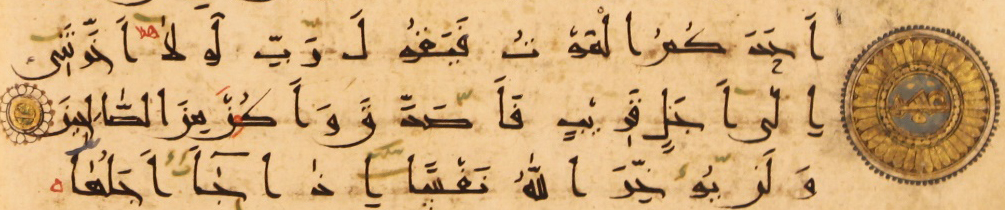 اَحَدَكُمُ الْمَوْتُ فَيَقُولَ رَبِّ لَوْلَا اَخَّرْتَنِى
اِلٰى اَجَلٍ قَرِيبٍ فَاَصَّدَّقَ وَاَكُنْ مِنَ الصَّالِحِينَ
وَلَنْ يُؤَخِّرَ اللّٰهُ نَفْسًا اِذَا جَاءَ اَجَلُهَا